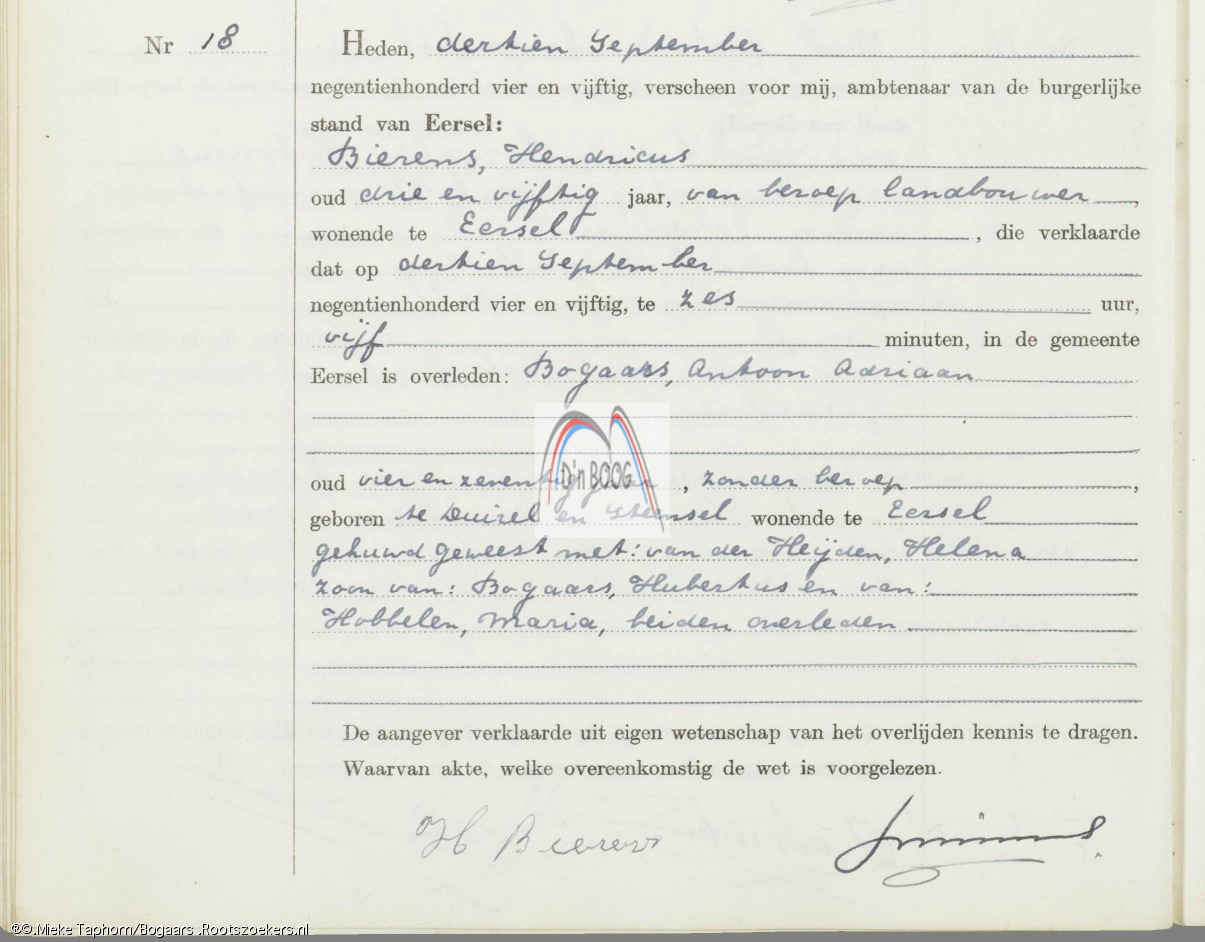 Nr 18
Heden, dertien September
negentienhonderd vier en vijftig, verscheen voor mij, ambtenaar van de burgerlijke
stand van Eersel:
Bierens, Hendricus
oud drie en vijftig jaar, van beroep landbouwer,
wonende te Eersel, die verklaarde
dat op dertien September
negentienhonderd vier en vijftig, te zes uur,
vijf minuten, in de gemeente
Eersel is overleden: Bogaars, Antoon Adriaan
D'n BOOG
oud vier en zeventig jaar, zonder beroep,
geboren te Duizel en Steensel wonende te Eersel
gehuwd geweest met: van der Heijden, Helena
zoon van: Bogaars, Hubertus en van:
Hobbelen, Maria, beiden overleden
De aangever verklaarde uit eigen wetenschap van het overlijden kennis te dragen.
Waarvan akte, welke overeenkomstig de wet is voorgelezen.
H Bierens
©©.Mieke Taphorn/Bogaars .Rootszoekers.nl